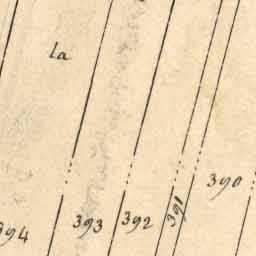 la
390
391
392
393
394